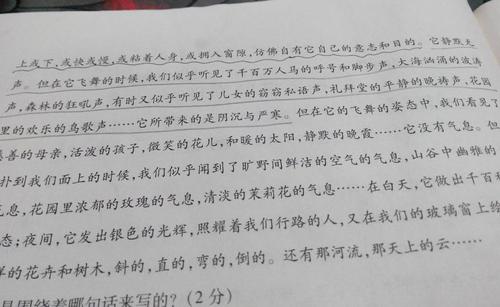 上或下,或快或慢,或粘着人身,或拥入窗隙,仿佛自有它自己的意志和目的。它静默无
声。但在它飞舞的时候,我们似乎听见了千百万人马的呼号和脚步声,大海汹涌的波涛
声,森林的狂吼声,有时又似乎听见了儿女的窃窃私语声,礼拜堂的平静的晚祷声,花园
里的欢乐的鸟歌声……它所带来的是阴沉与严寒。但在它的飞舞的姿态中,我们看见了
慈善的母亲,活泼的孩子,微笑的花儿,和暖的太阳,静默的晚霞……它没有气息。但
扑到我们面上的时候,我们似乎闻到了旷野间鲜洁的空气的气息,山谷中幽雅的
气息,花园里浓郁的玫瑰的气息,清淡的茉莉花的气息……在白天,它做出千百
态;夜间,它发出银色的光辉,照耀着我们行路的人,又在我们的玻璃窗上
样的花卉和树木,斜的,直的,弯的,倒的。还有那河流,那天上的云……
是围绕着哪句话来写的?(2分)